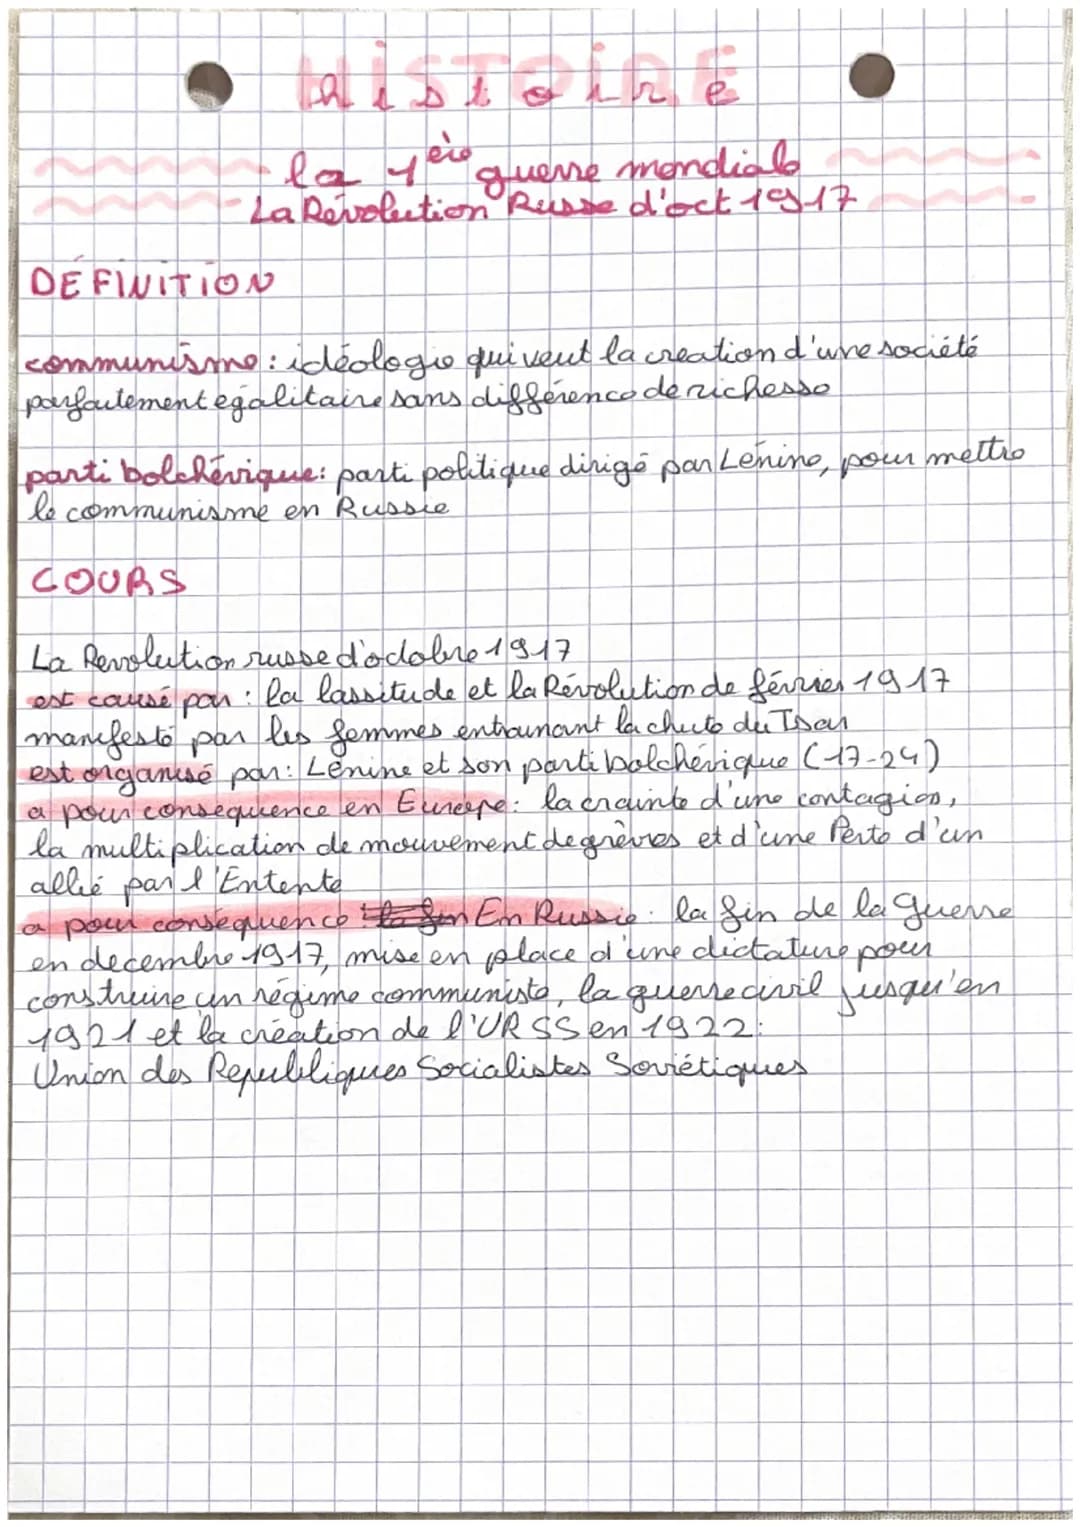 HISTOIRE
histoire
la 1ère guerre mondiale
La Révolution Russe d'oct 1917
DEFINITION
communisme : idéologie qui veut la creation d'une société
parfaitement égalitaire sans différence de richesse
parti bolchévique : parti politique dirigé par Lénine, pour mettre
le communisme en Russie
COURS
La Revolution russe d'octobre 1917
est causé par : la lassitude et la Révolution de février 1917
manifesté par les femmes entrainant la chute du Tsar
est organisé par : Lénine et son parti bolchévique (17-24)
a pour consequence en Europe : la crainte d'une contagion,
la multiplication de mouvement de grèves et d'une Perte d'un
allié par l'Entente
a pour conséquence : la fin En Russie : la fin de la guerre
en decembre 1917, mise en place d'une dictature pour
construire un régime communiste, la guerre civil jusqu'en
1921 et la création de l'URSS en 1922 :
Union des Republiques Socialistes Soviétiques